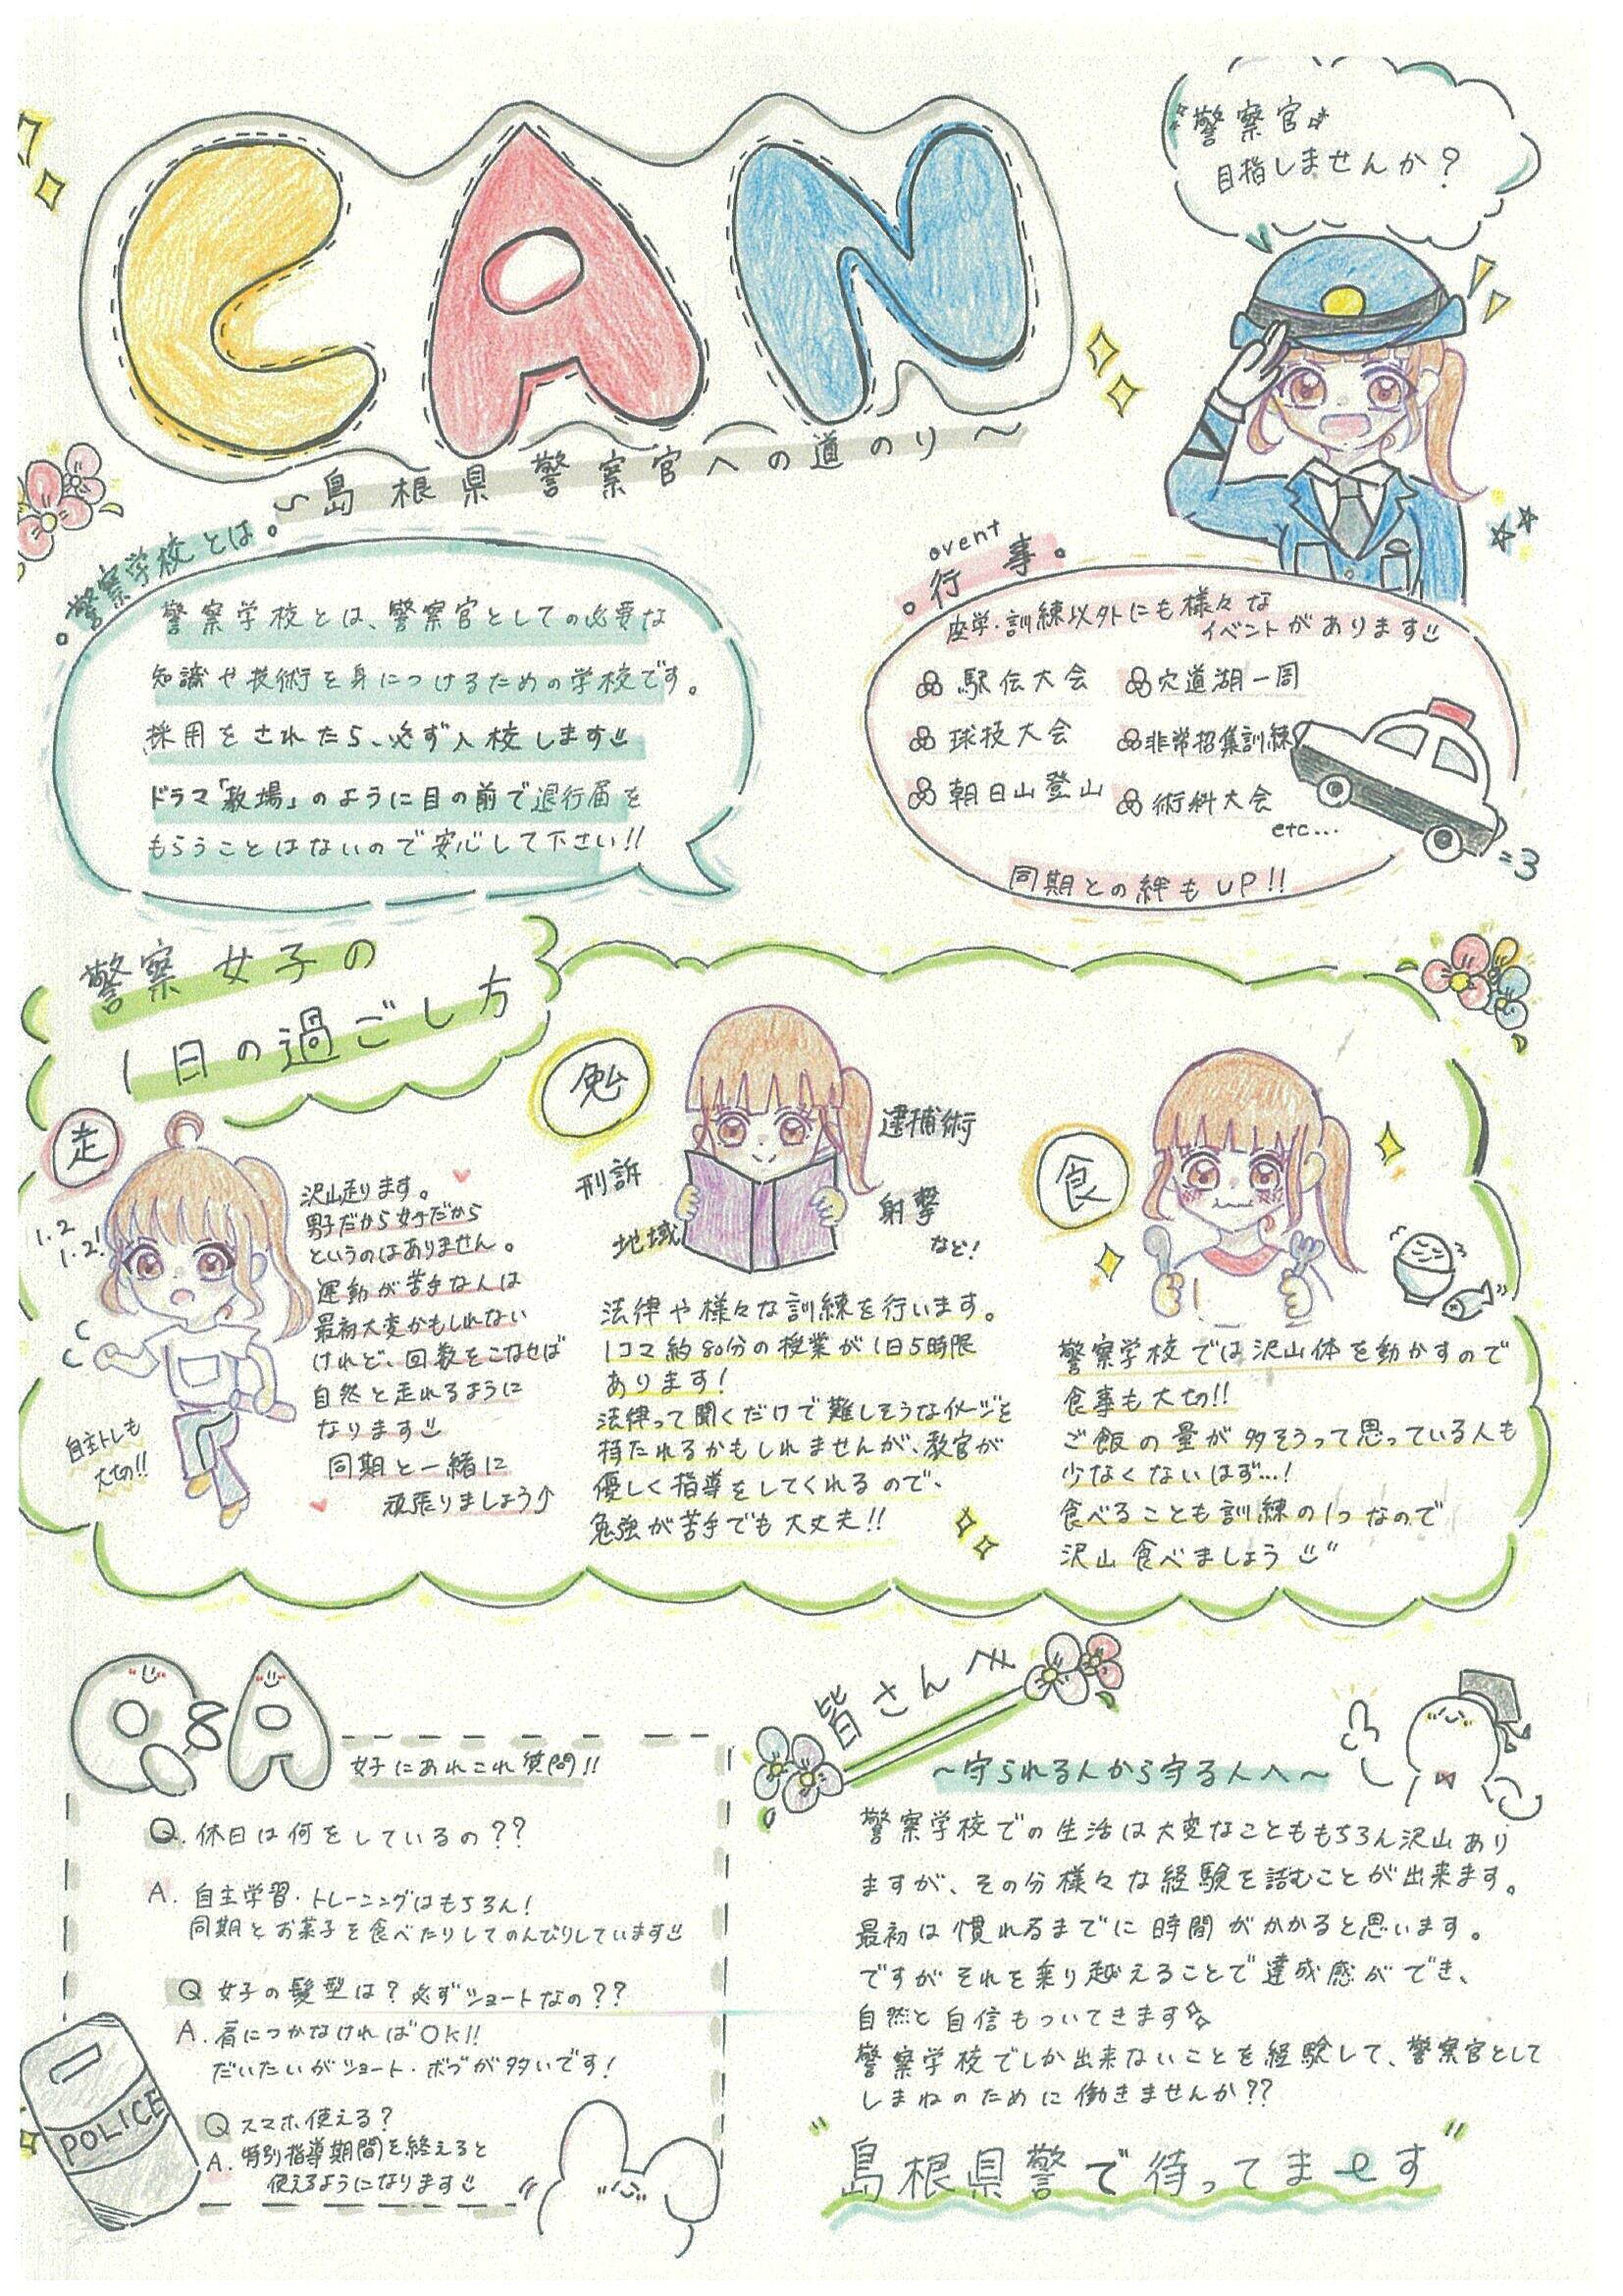 CAN
～島根県警察官への道のり～
警察官
目指しませんか？
警察学校とは。
警察学校とは、警察官としての必要な
知識や技術を身につけるための学校です。
採用をされたら、必ず入校します
ドラマ「教場」のように目の前で退行届を
もらうことはないので安心して下さい!!
event
行事。
座学・訓練以外にも様々な
イベントがあります
駅伝大会
穴道湖一周
球技大会
非常招集訓練
朝日山登山
術科大会
etc...
同期との絆もUP!!
警察女子の
1日の過ごし方
走
1.2
1.2!
沢山走ります。
男子だから女子だから
というのはありません。
運動が苦手な人は
最初大変かもしれない
けれど、回数をこなせば
自然と走れるように
なります
同期と一緒に
頑張りましょう↑
自主トレも
大切!!
勉
刑訴
地域
逮捕術
射撃
など!
法律や様々な訓練を行います。
1コマ約80分の授業が1日5時限
あります!
法律って聞くだけで難しそうなイメージを
持たれるかもしれませんが、教官が
優しく指導をしてくれるので、
勉強が苦手でも大丈夫!!
食
警察学校では沢山体を動かすので
食事も大切!!
ご飯の量が多そうって思っている人も
少なくないはず…!
食べることも訓練の1つなので
沢山食べましょう
Q&A
女子にあれこれ質問!!
Q. 休日は何をしているの??
A. 自主学習・トレーニングはもちろん!
同期とお菓子を食べたりしてのんびりしています
Q 女子の髪型は？必ずショートなの??
A. 肩につかなければOK!!
だいたいがショート・ボブが多いです!
Q スマホ使える?
A. 特別指導期間を終えると
使えるようになります
POLICE
皆さんへ
～守られる人から守る人へ～
警察学校での生活は大変なことももちろん沢山あり
ますが、その分様々な経験を詰むことが出来ます。
最初は慣れるまでに時間がかかると思います。
ですがそれを乗り越えることで達成感ができ、
自然と自信もついてきます
警察学校でしか出来ないことを経験して、警察官として
しまねのために働きませんか??
"島根県警で待ってまーす"